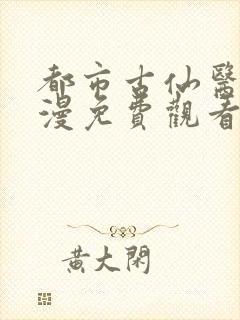 都市古仙醫
漫免費觀看
黃大閑